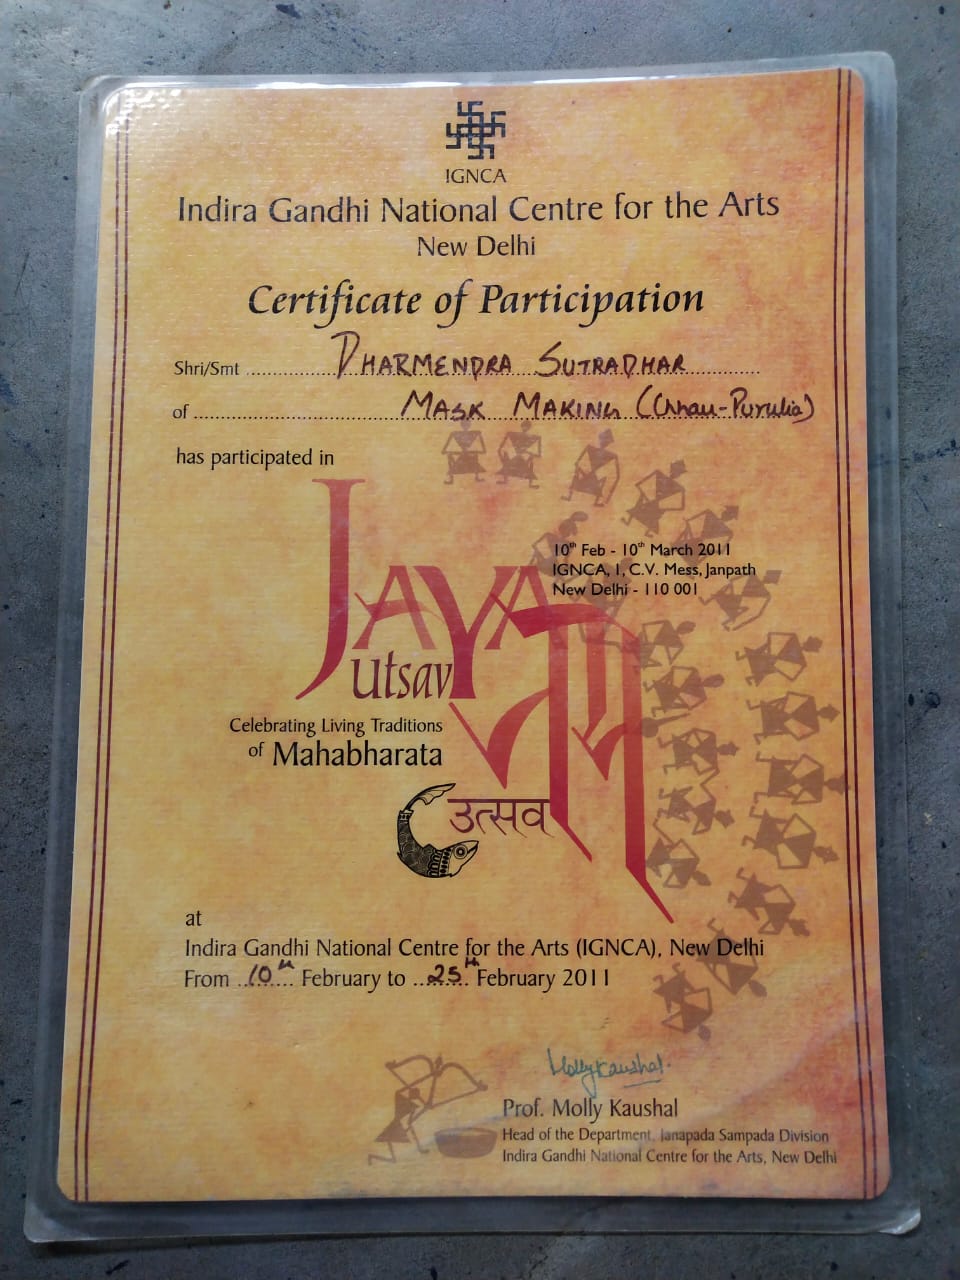 IGNCA
Indira Gandhi National Centre for the Arts
New Delhi
Certificate of Participation
Shri/Smt DHARMENDRA SUTRADHAR
of MASK MAKING (Chhau-Purulia)
has participated in
10th Feb - 10th March 2011
IGNCA, 1, C.V. Mess, Janpath
New Delhi - 110 001
JAYA
utsav
जय
उत्सव
Celebrating Living Traditions
of Mahabharata
at
Indira Gandhi National Centre for the Arts (IGNCA), New Delhi
From 10th February to 25th February 2011
Molly Kaushal
Prof. Molly Kaushal
Head of the Department, Janapada Sampada Division
Indira Gandhi National Centre for the Arts, New Delhi